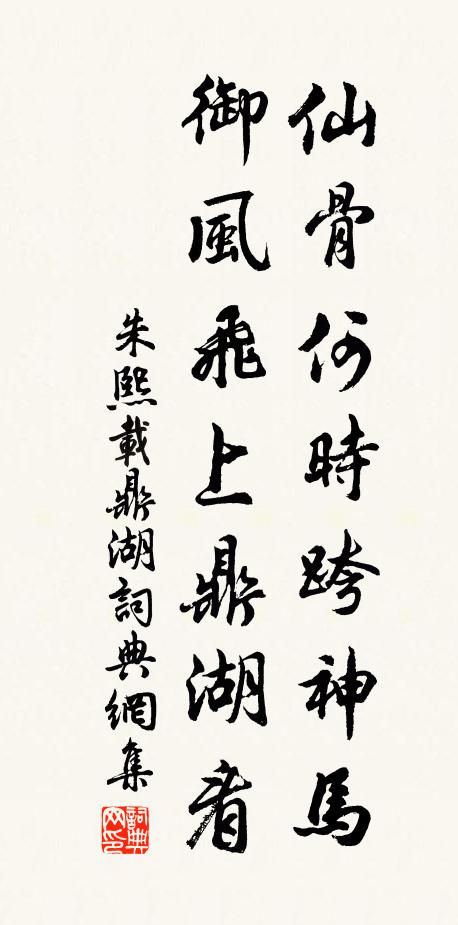 仙骨何時跨神馬
御風飛上鼎湖看
朱熙載鼎湖詞典網集
詞典网印